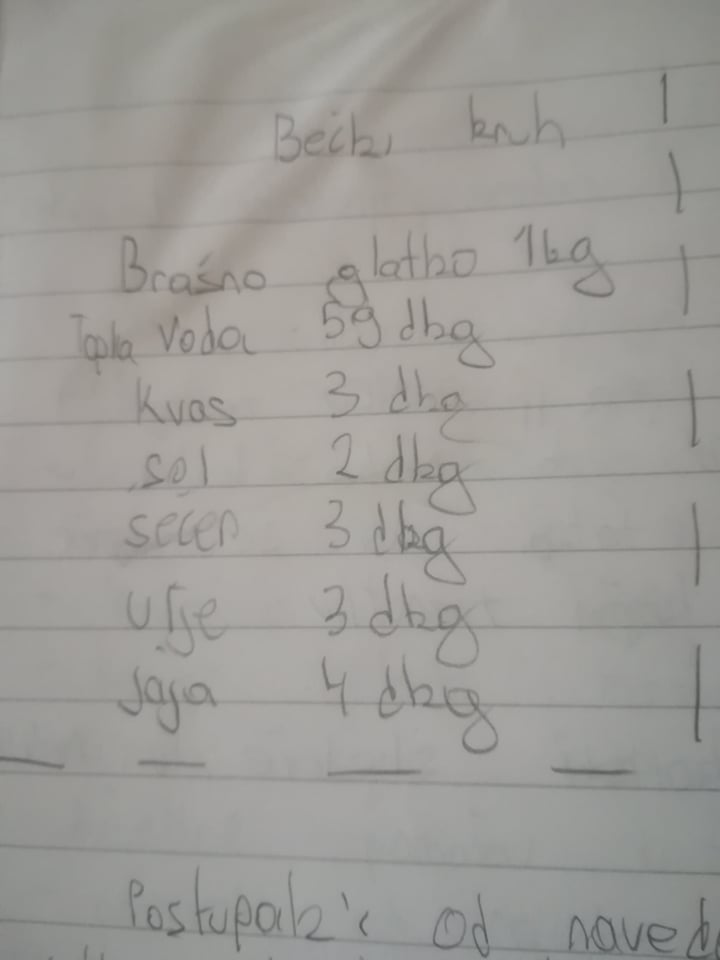 Bečki kruh
Brašno glatko 1kg
Topla Voda 59 dkg
Kvas 3 dkg
sol 2 dkg
šećer 3 dkg
Ulje 3 dkg
Jaja 4 dkg
Postupak: od